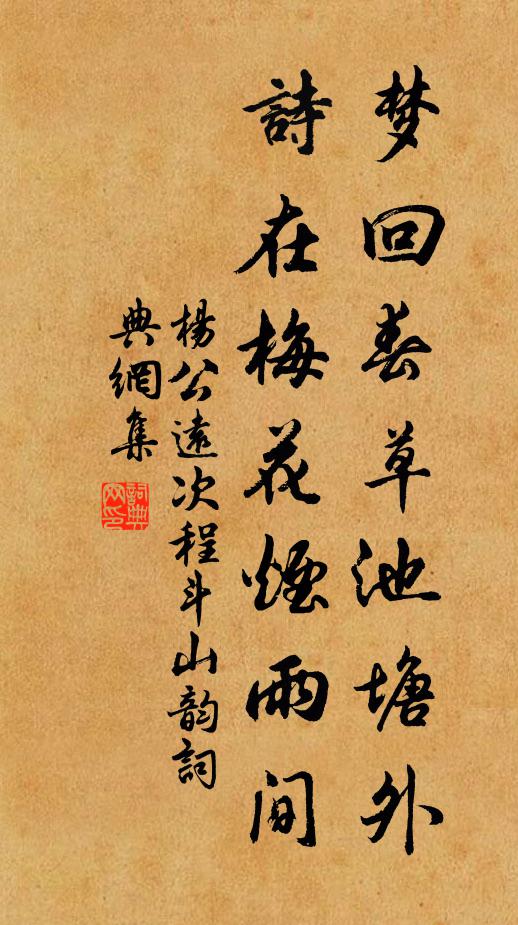 梦回春草池塘外
詩在梅花煙雨間
楊公遠次程斗山韵詞
典網集
詞典
网印